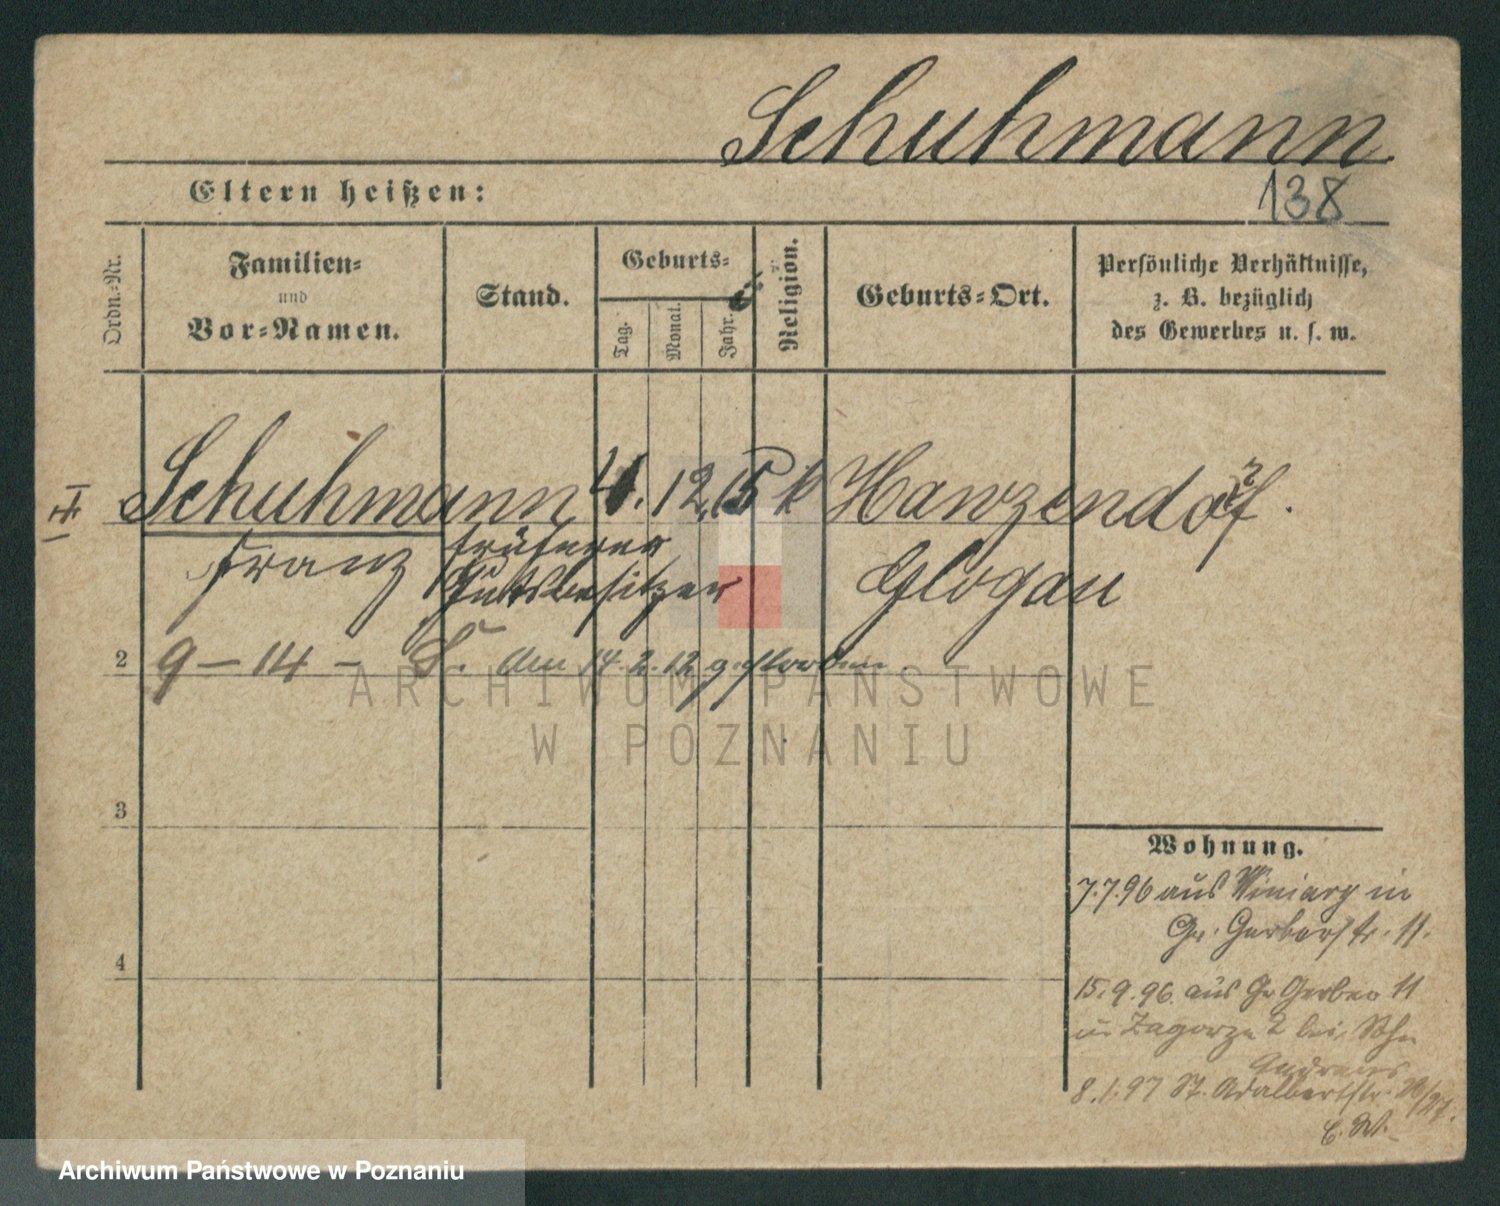 Schuhmann
138
Eltern heißen:
Ordn.-Nr.
Familien-
und
Vor-Namen.
Stand.
Geburts-
Tag.
Monat.
Jahr.
Religion.
Geburts-Ort.
Persönliche Verhältnisse,
z. B. bezüglich
des Gewerbes u. s. w.
Schuhmann 4. 12. 15 k
Franz früherer Glogau
Gutsbesitzer
2 9-14- am 14.2.12 gestorben.
3
4
Wohnung.
7.7.96 aus Winiary in
Gr. Gerberstr. 11.
15.9.96. aus Gr Gerber 11
Zagorze 2 bei
Andreas
8.1.97 St. Adalbertstr. 26/27.
E.W.
ARCHIWUM PAŃSTWOWE
W POZNANIU
Archiwum Państwowe w Poznaniu